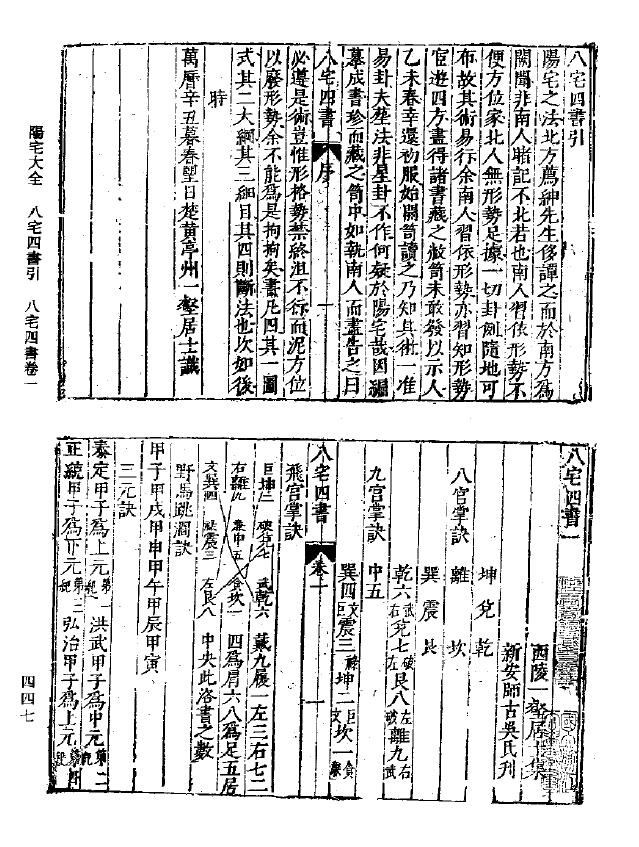 八宅四書引
陽宅之法北方薦紳先生侈譚之而於南方為
闕聞非南人睹記不北若也南人習依形勢不
便方位家北人無形勢足據一切卦例隨地可
布故其術易行余南人習依形勢亦習知形勢
宦遊四方盡得諸書藏之敝笥未敢發以示人
乙未春幸還初服始開笥讀之乃知其術一准
易卦夫塋法非星卦不作何疑於陽宅哉因編
摹成書珍而藏之笥中如執南人而盡告之曰
八宅四書 序 一
必遵是術豈惟形格勢禁終沮不行而泥方位
以廢形勢余不能為是拘拘矣書凡四其一圖
式其二大綱其三細目其四則斷法也次如後
時
萬曆辛丑暮春望日楚黃亭州一壑居士識
陽宅大全 八宅四書引 八宅四書卷一
八宅四書一
西陵一壑居士集
新安師古吳氏刊
坤 兌 乾
八宮掌訣 離 坎
巽 震 艮
乾六武右 兌七破左 艮八左破 離九右武
九宮掌訣 中五
巽四文巨 震三祿 坤二巨文 坎一貪
八宅四書 卷一 一
飛宮掌訣
巨坤二 破兌七 武乾六 戴九履一左三右七二
右離九 中五 貪坎一 四為肩六八為足五居
文巽四 祿震三 左艮八 中央此洛書之數
野馬跳澗訣
甲子甲戌甲申甲午甲辰甲寅
三元訣
泰定甲子為上元第一紀 洪武甲子為中元第二紀
正統甲子為下元第三紀 弘治甲子為上元第四紀
四四七